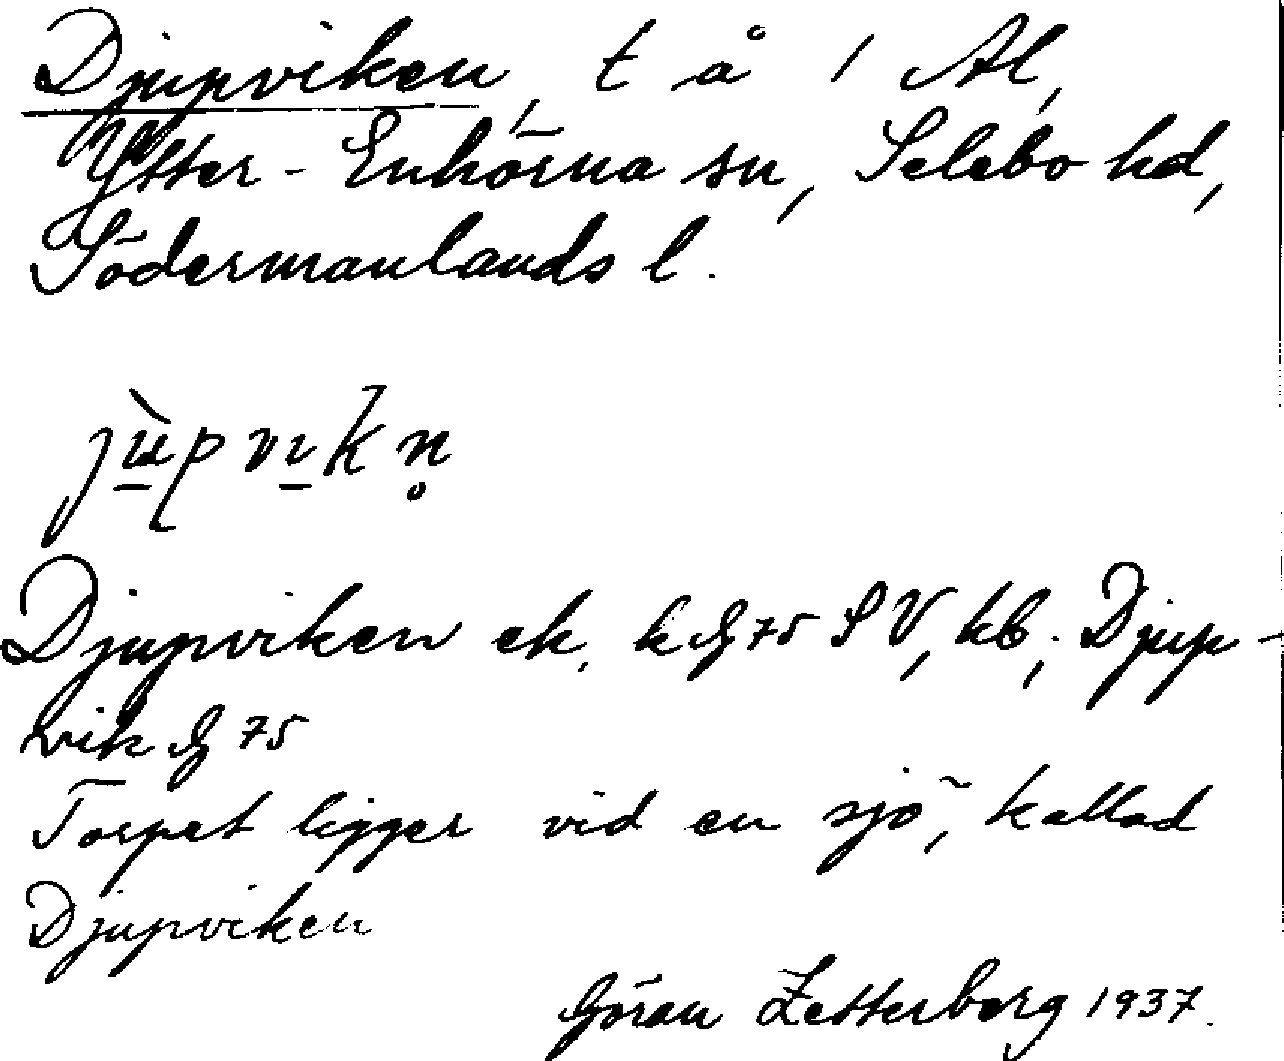 Djupviken, t å 1 Al,
Ytter-Enhörna sn, Selebo hd,
Södermanlands l.
jùpvıkn̥
Djupviken ek, k G 75 SV, kb; Djup-
vik G 75
Torpet ligger vid en sjö, kallad
Djupviken
Göran Zetterberg 1937.